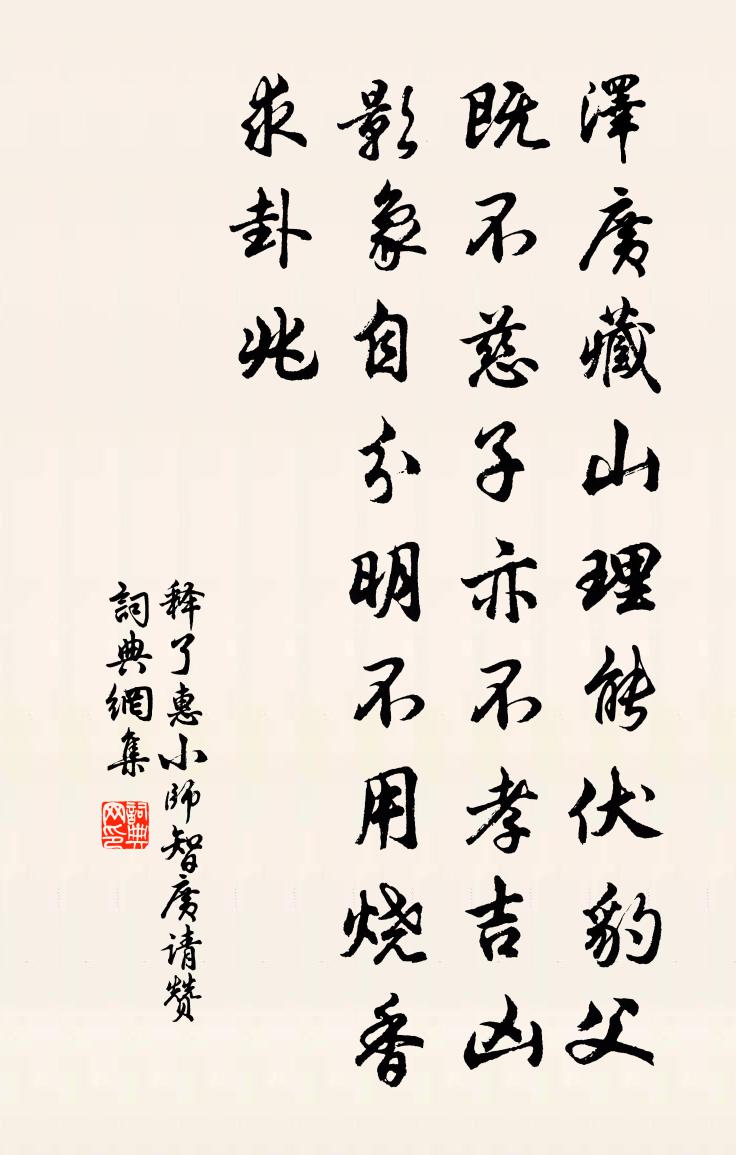 澤廣藏山理能伏豹父
既不慈子亦不孝吉凶
影象自分明不用烧香
求卦兆
释了惠小師智廣请赞
詞典網集
詞典网印